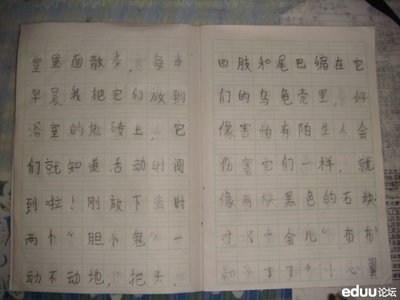 室里面散步，每当
早晨我把它们放到
浴室的地砖上，它
们就知道活动时间
到啦！刚放下当时
两个“胆小鬼”一
动不动地，把头、
四肢和尾巴缩在它
们的乌龟壳里，好
像害怕有陌生人会
伤害它们一样，就
像两块黑色的石块
过了中会儿“布布”
和 丁丁 小心翼
eduu论坛